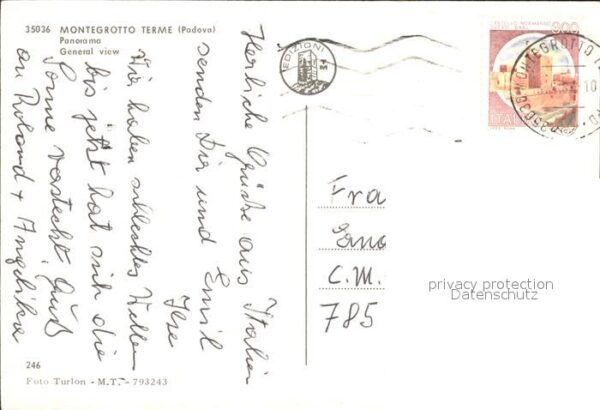 35036 MONTEGROTTO TERME (Padova)
Panorama
General view
EDIZIONI
MONTEGROTTO
35036
10
CASTELLO NORMANNO
900
ITALIA
Herzliche Grüße aus Italien
senden Dir und Emil
Ilse
Wir haben schlechtes Wetter
bis jetzt hat sich die
Sonne versteckt. Gruß
an Roland + Angelika
Fra
C.M.
785
privacy protection
Datenschutz
246
Foto Turlon - M.T. - 793243